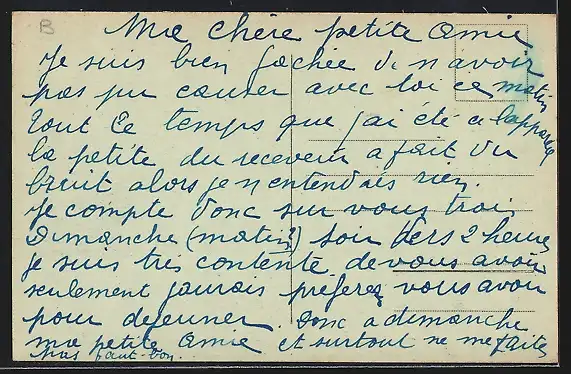 B
Ma chère petite amie
Je suis bien fachée de n avoir
pas pu causer avec toi ce matin
tout le temps que j'ai été a l'appareil
la petite du receveur a fait du
bruit alors je n entendais rien.
Je compte donc sur vous trois
Dimanche (matin?) soir vers 2 heures
je suis tres contente de vous avoir
seulement jaurais préferez vous avoir
pour dejeuner. Donc a dimanche
ma petite amie et surtout ne me faites
pas faut-bon.